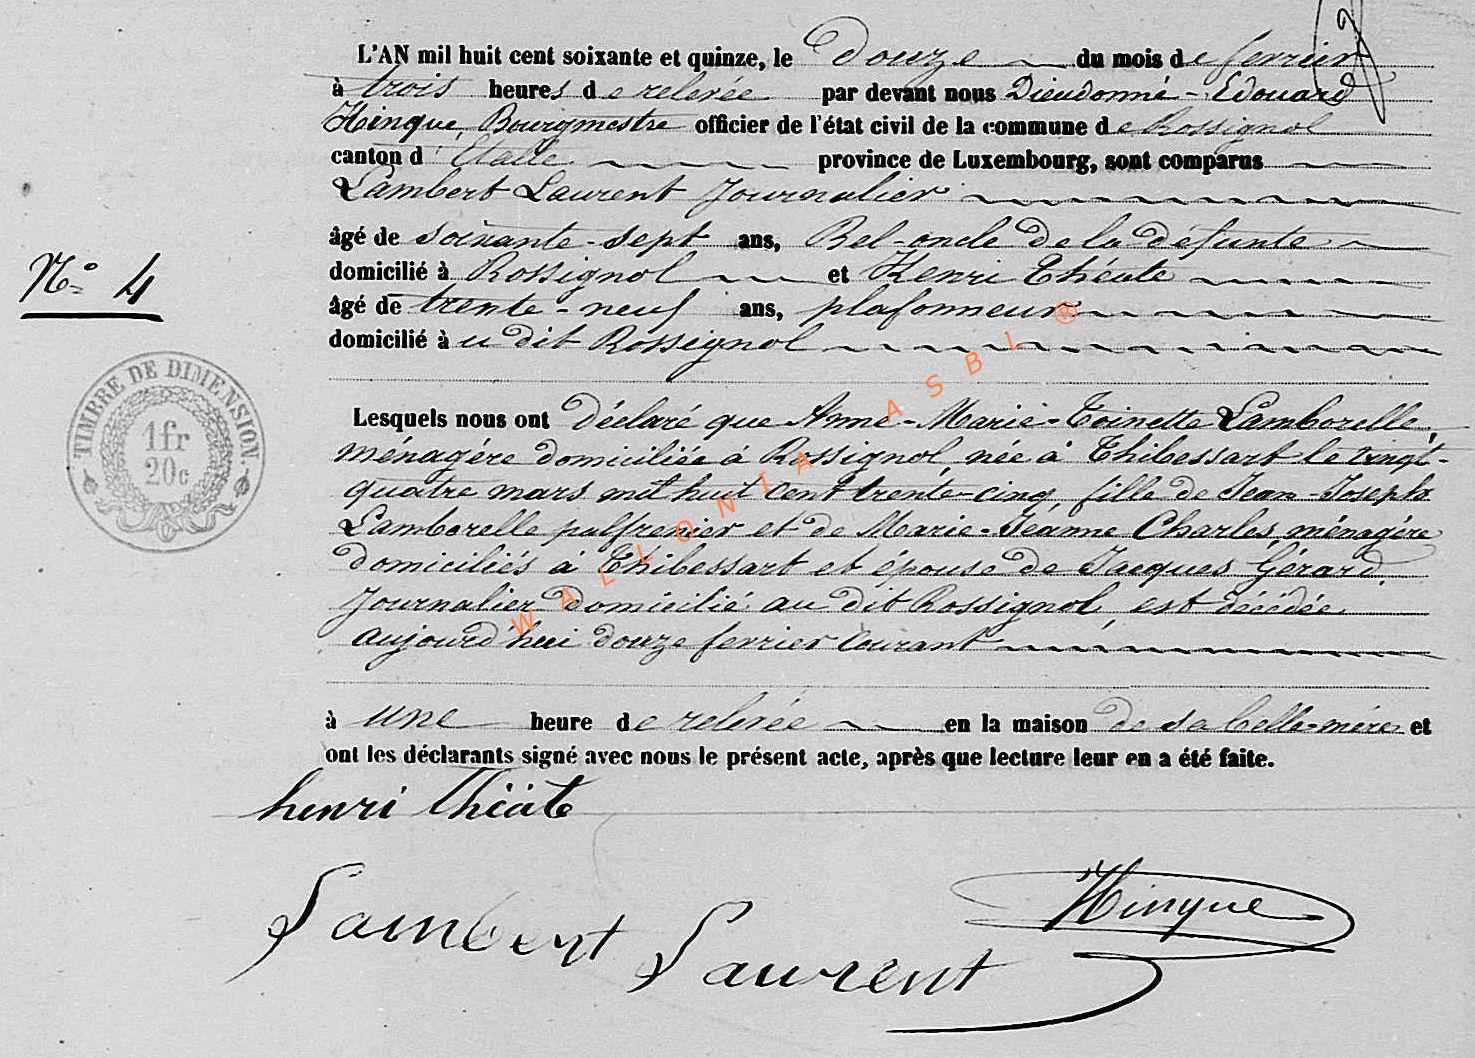 L'AN mil huit cent soixante et quinze, le douze du mois de fevrier
à trois heures de relevée par devant nous Dieudonné-Edouard
Hinque, Bourgmestre officier de l'état civil de la commune de Rossignol
canton d'Etalle province de Luxembourg, sont comparus
Lambert Laurent Journalier
âgé de soixante-sept ans, Bel-oncle de la défunte
domicilié à Rossignol et Henri Théate
âgé de trente-neuf ans, plafonneur
domicilié à u dit Rossignol
Lesquels nous ont déclaré que Anne-Marie-Toinette Lamborelle,
ménagère domiciliée à Rossignol née à Thibessart le vingt-
quatre mars mil huit cent trente-cinq fille de Jean-Joseph
Lamborelle palfrenier et de Marie-Jéanne Charles, ménagère
domiciliés à Thibessart et épouse de Jacques Gérard
Journalier domicilié au dit Rossignol, est décédée
aujourd'hui douze fevrier courant
à une heure de relevée en la maison de sa belle-mère et
ont les déclarants signé avec nous le présent acte, après que lecture leur en a été faite.
henri Théâte
Hinque
Lambert Laurent
N° 4
TIMBRE DE DIMENSION.
1fr
20c
WALLONIA ASBL ®